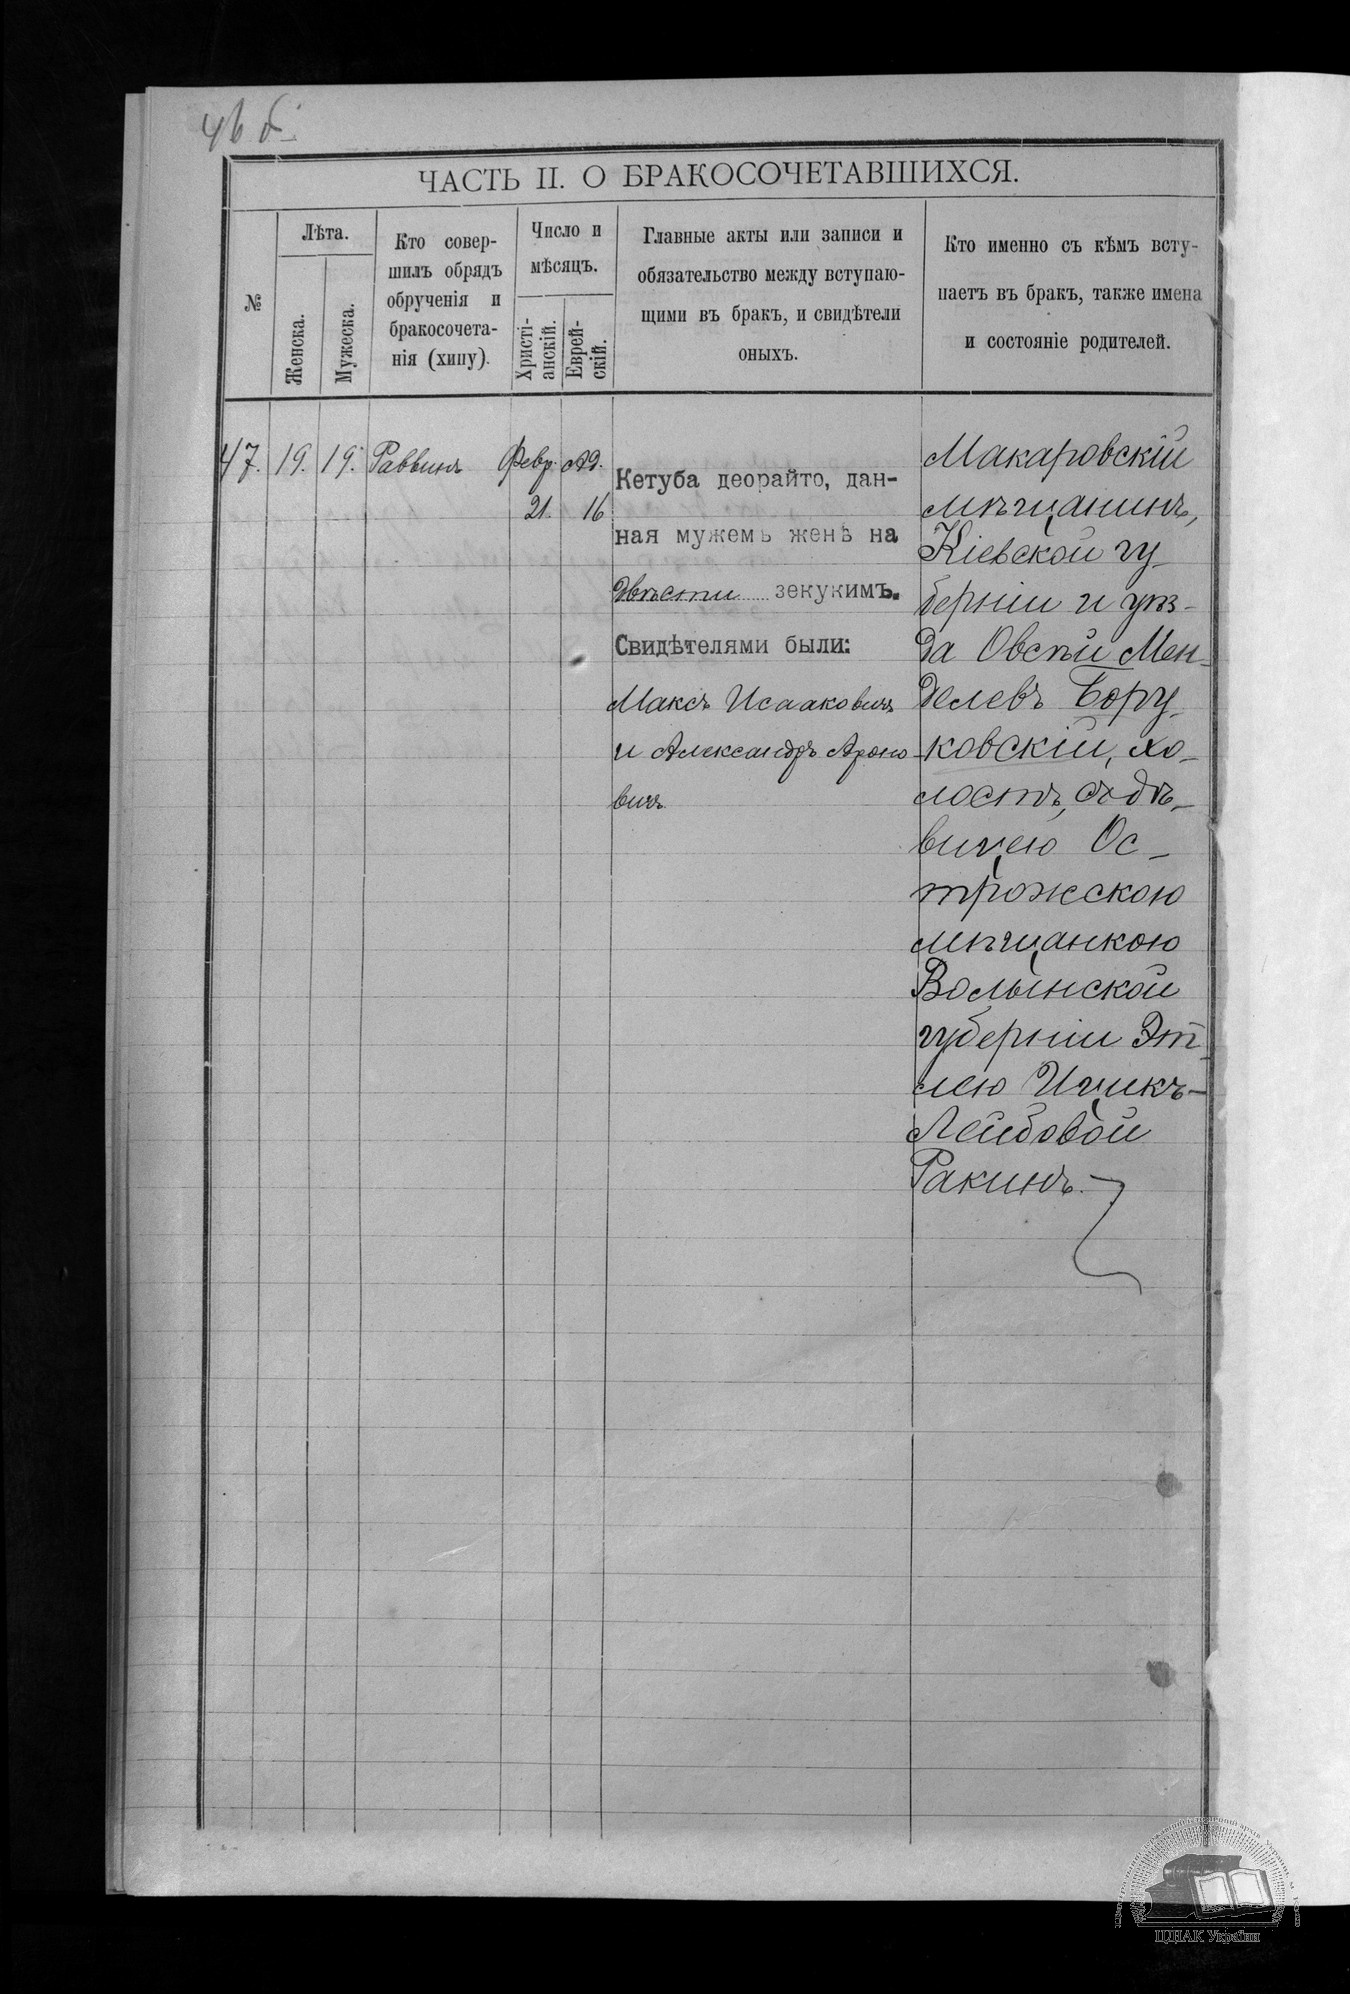 46 б
ЧАСТЬ II. О БРАКОСОЧЕТАВШИХСЯ.
№
Лѣта.
Женска.
Мужеска.
Кто совер-
шилъ обрядъ
обрученія и
бракосочета-
нія (хипу).
Число и
мѣсяцъ.
Христі-
анскій.
Еврей-
скій.
Главные акты или записи и
обязательство между вступаю-
щими въ бракъ, и свидѣтели
оныхъ.
Кто именно съ кѣмъ всту-
паетъ въ бракъ, также имена
и состояніе родителей.
47. 19. 19. Раввинъ Февр. Ад.
21. 16
Кетуба деорайто, дан-
ная мужемъ женѣ на
двѣсти зекукимъ.
Свидѣтелями были:
Максъ Исааковичъ
и Александръ Ароно-
вичъ
Макаровскій
мѣщанинъ,
Кіевской гу-
берніи и уѣз-
да Овсѣй Мен-
делевъ Бору-
ковскій, хо-
лостъ, съ дѣ-
вицею Ос-
трожскою
мѣщанкою
Волынской
губерніи Эт-
лею Ицикъ-
Лейбовой
Ракинъ.
ЦДІАК України